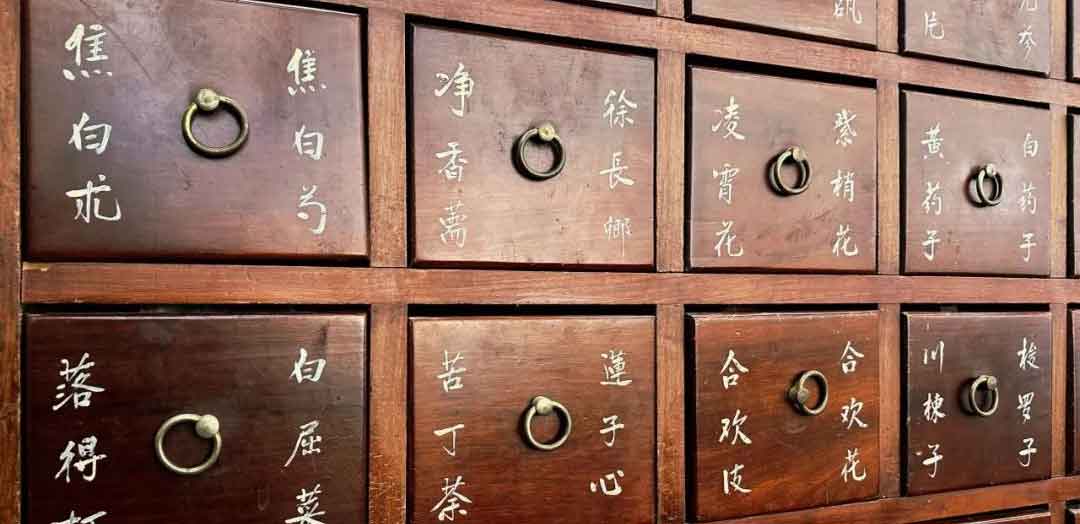 片
参
焦白术
焦白芍
净香薷
徐長卿
凌霄花
紫梢花
黄药子
白药子
落得
白屈菜
苦丁茶
蓮子心
合欢皮
合欢花
川楝子
梭罗子